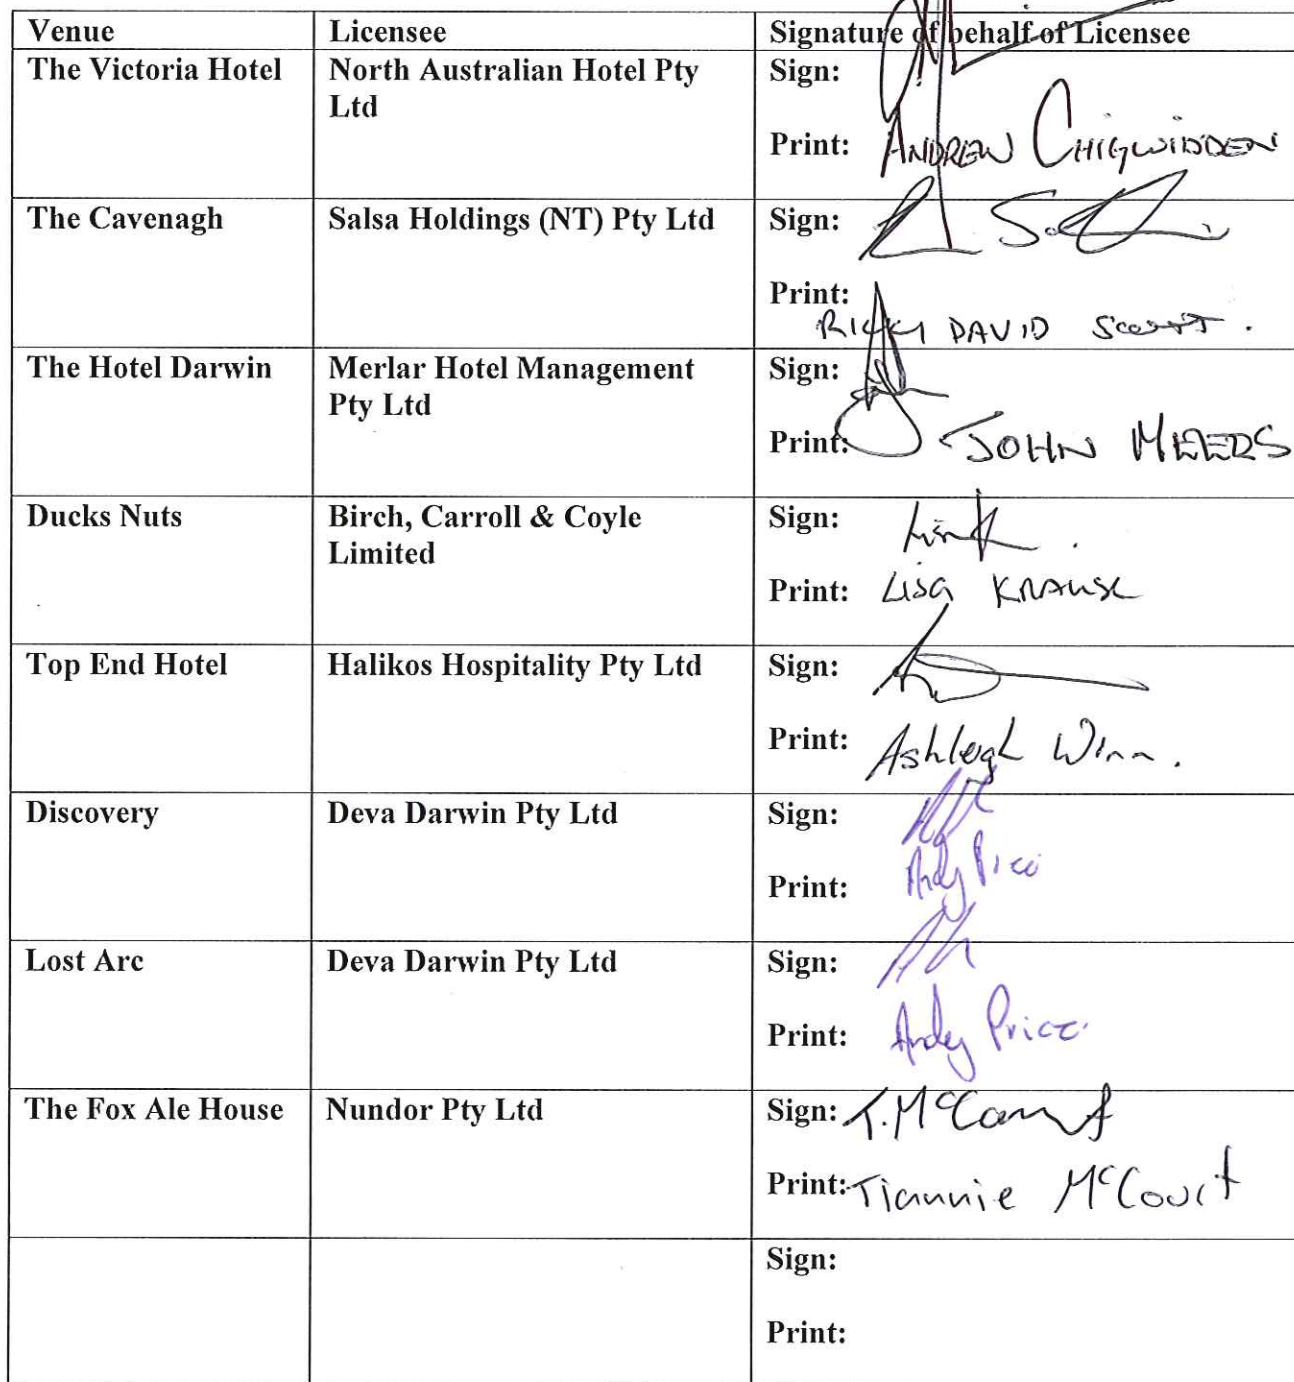 Venue Licensee Signature of behalf of Licensee
The Victoria Hotel North Australian Hotel Pty Sign:
Ltd
Print: ANDREW CHIGWIDDEN
The Cavenagh Salsa Holdings (NT) Pty Ltd Sign:
Print:
RICKY DAVID SCOTT.
The Hotel Darwin Merlar Hotel Management Sign:
Pty Ltd
Print: JOHN MEERS
Ducks Nuts Birch, Carroll & Coyle Sign:
Limited
Print: Lisa KRAUSE
Top End Hotel Halikos Hospitality Pty Ltd Sign:
Print: Ashleigh Winn.
Discovery Deva Darwin Pty Ltd Sign:
Print: Andy Price
Lost Arc Deva Darwin Pty Ltd Sign:
Print: Andy Price
The Fox Ale House Nundor Pty Ltd Sign: T. McCourt
Print: Tiannie McCourt
Sign:
Print: